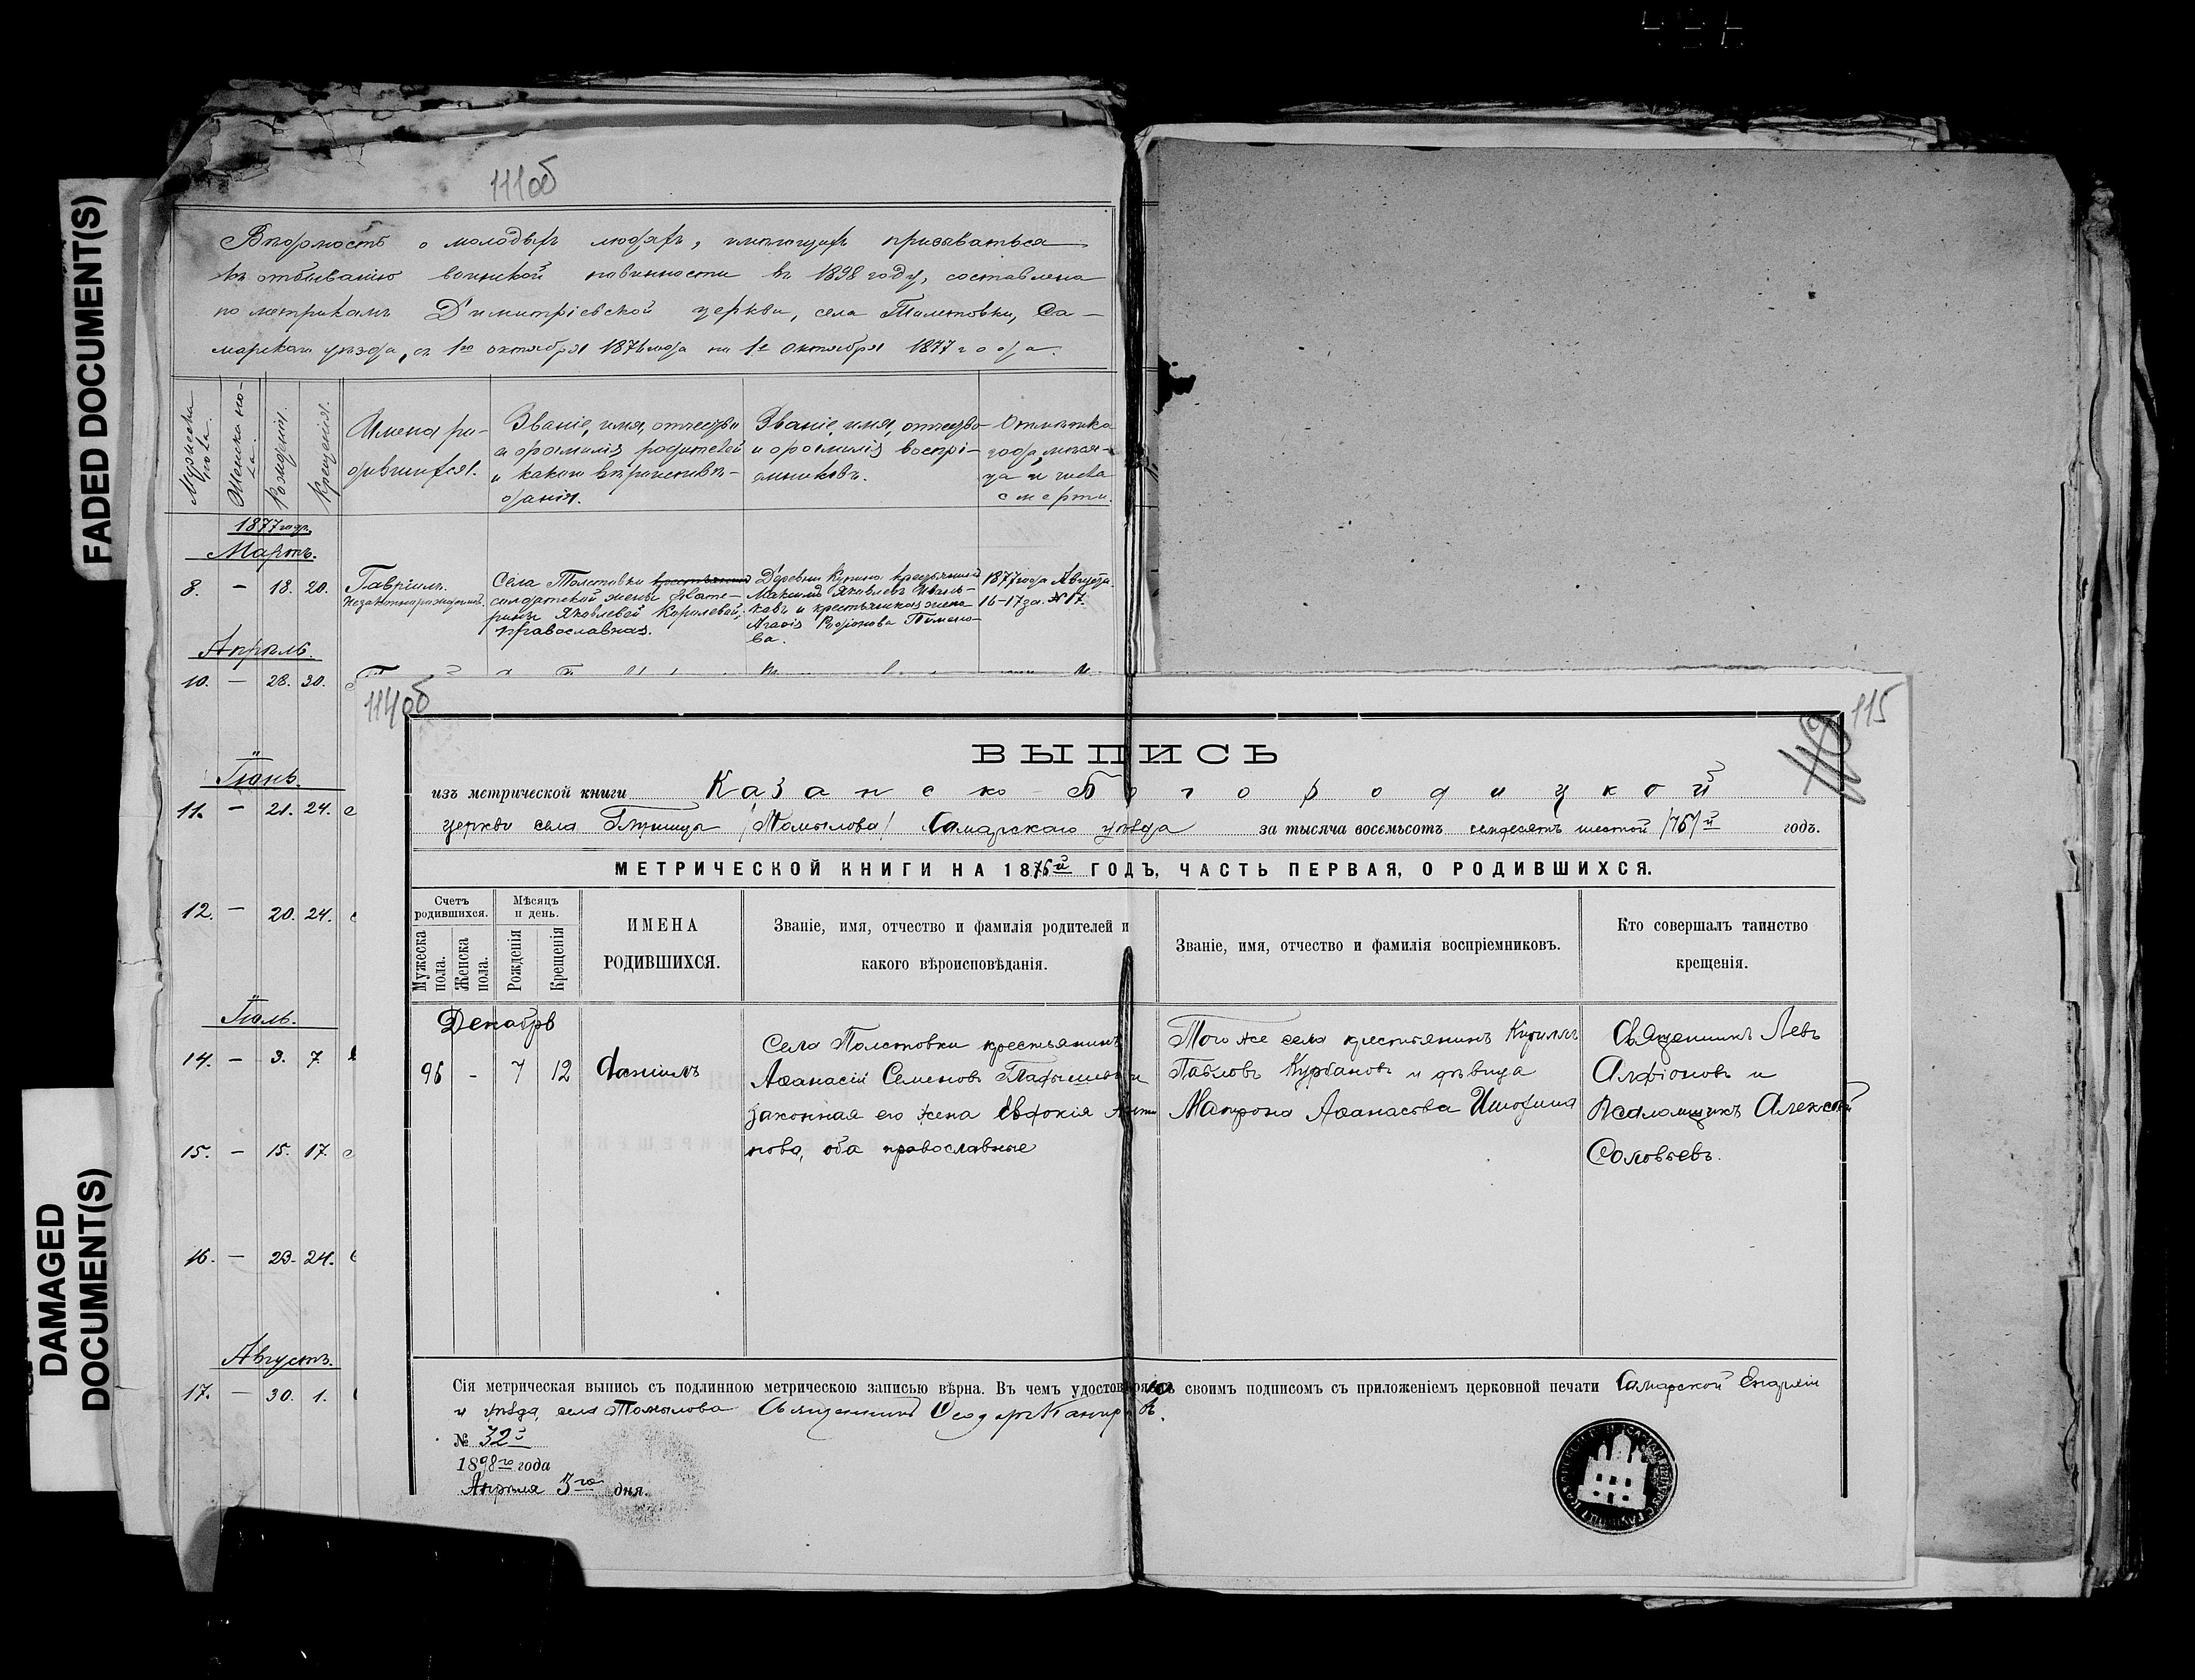 FADED DOCUMENT(S)
DAMAGED
DOCUMENT(S)
111об
Вѣдомость о молодыхъ людяхъ, имѣющихъ призываться
къ отбыванію воинской повинности въ 1898 году, составлена
по метрикамъ Димитріевской церкви, села Толстовки, Са-
марскаго уѣзда, съ 1го октября 1876 года по 1е октября 1877 года.
Мужеска пола.
Женска пола.
Рожденія.
Крещенія.
Имена ро-
дившихся.
Званіе, имя, отчество
и фамилія родителей
и какого вѣроисповѣ-
данія.
Званіе, имя, отчество
и фамилія воспрі-
емниковъ.
Отмѣтка
года, мѣся-
ца и числа
смерти.
1877 годъ.
Мартъ.
8. – 18. 20.
Гавріилъ.
незаконнорожденный.
Села Толстовки крестьянина
солдатской жены Екате-
рины Яковлевой Королевой,
православная.
Деревни крестьянинъ
Максимъ Яковлевъ
ковъ и крестьянская жена
Родіонова Пимено-
ва.
1877 года Августа
16-17 за № 17.
Апрѣль.
10. – 28. 30.
Іюнь.
11. – 21. 24.
12. – 20. 24.
Іюль.
14. – 3. 7.
15. – 15. 17
16. – 23. 24.
Августъ.
17. – 30. 1.
114об
115
ВЫПИСЬ
изъ метрической книги Казанско-Богородицкой
церкви села Глушицы /Томылова/ Самарскаго уѣзда за тысяча восемьсотъ семьдесятъ шестой /76/й годъ.
МЕТРИЧЕСКОЙ КНИГИ НА 1876й ГОДЪ, ЧАСТЬ ПЕРВАЯ, О РОДИВШИХСЯ.
Счетъ
родившихся.
Мѣсяцъ
и день.
Мужеска
пола.
Женска
пола.
Рожденія
Крещенія
ИМЕНА
РОДИВШИХСЯ.
Званіе, имя, отчество и фамилія родителей и
какого вѣроисповѣданія.
Званіе, имя, отчество и фамилія воспріемниковъ.
Кто совершалъ таинство
крещенія.
Декабрь
96 - 7 12
Даніилъ
Села Толстовки крестьянинъ
Аѳанасій Семеновъ и
законная его жена Евдокія
нова, оба православные
Того же села крестьянинъ Кириллъ
Павловъ Курбановъ и дѣвица
Матрона Аѳанасьева
Священникъ Левъ
Алфіоновъ и
Псаломщикъ Алексѣй
Соловьевъ.
Сія метрическая выпись съ подлинною метрическою записью вѣрна. Въ чемъ удостовѣряетъ своимъ подписомъ съ приложеніемъ церковной печати Самарской Епархіи
и уѣзда, села Томылова Священникъ Ѳеодоръ
№ 32
1898го года
Апрѣля 3го дня.